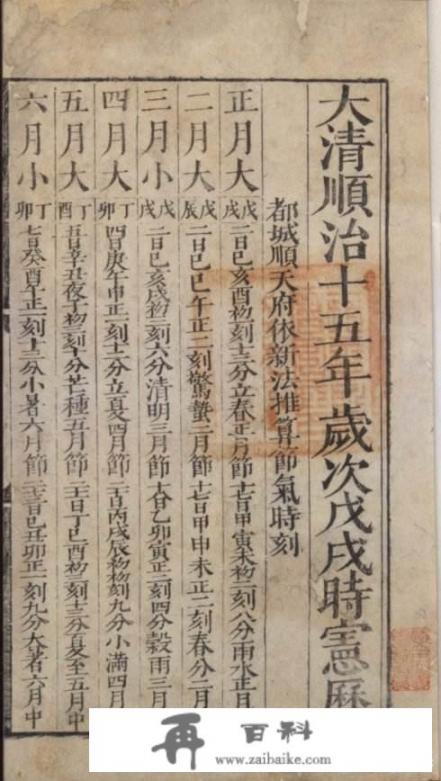 大清順治十五年歲次戊戌時憲曆
都城順天府依新法推算節氣時刻
正月大 戊戌 二日己亥酉初三刻十三分立春正月節 十七日甲寅未初三刻八分雨水正月
二月大 戊辰 二日己巳午正二刻驚蟄二月節 十七日甲申未正一刻春分二月
三月小 戊戌 二日己亥戌初三刻六分清明三月節 十八日乙卯寅正三刻四分穀雨三月
四月大 丁卯 四日庚午申正一刻十三分立夏四月節 二十日丙戌辰初初刻九分小滿四月
五月大 丁酉 五日辛丑夜子初三刻十分芒種五月節 二十一日丁巳酉初三刻十三分夏至五月中
六月小 丁卯 七日癸酉午正一刻十三分小暑六月節 二十三日己丑卯正一刻九分大暑六月中
再百科
www.zaibaike.com